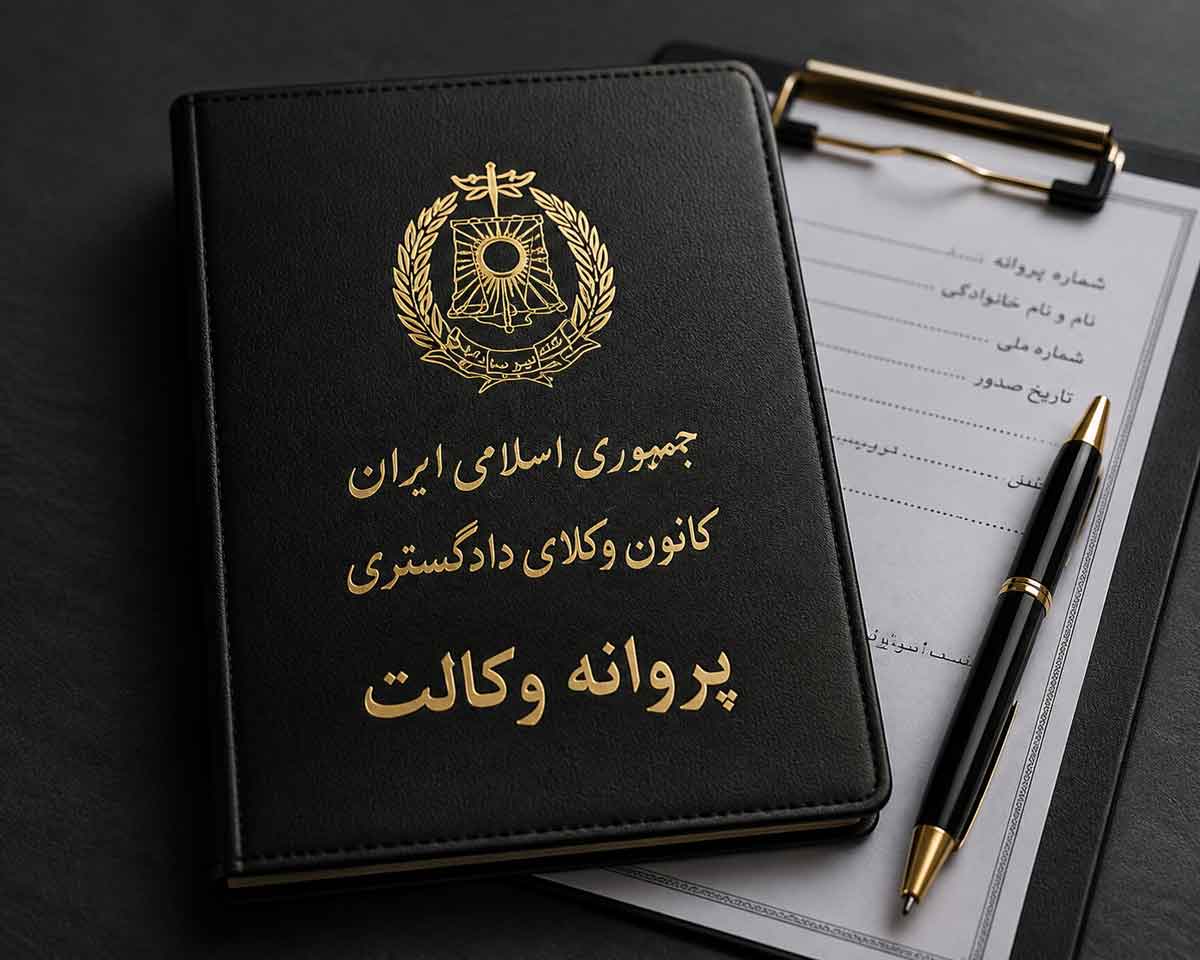 جمهوری اسلامی ایران
کانون وکلای دادگستری
پروانه وکالت
شماره پروانه
نام و نام خانوادگی
شماره ملی
تاریخ صدور